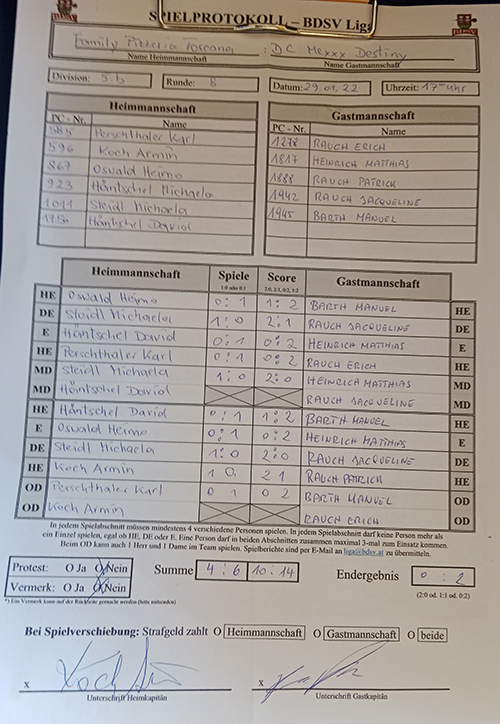 SPIELPROTOKOLL – BDSV Liga
Family Pizzeria Toscana : DC Mexxx Destiny
Name Heimmannschaft Name Gastmannschaft
Division: 5.b Runde: 8 Datum: 29.01.22 Uhrzeit: 17 Uhr
Heimmannschaft Gastmannschaft
PC - Nr. Name PC - Nr. Name
585 Perschthaler Karl 1278 RAUCH ERICH
596 Koch Armin 1817 HEINRICH MATTHIAS
867 Oswald Heimo 1888 RAUCH PATRICK
923 Häntschel Michaela 1942 RAUCH JACQUELINE
1011 Steidl Michaela 1945 BARTH MANUEL
1150 Häntschel David
Heimmannschaft Spiele Score Gastmannschaft
1:0 oder 0:1 2:0, 2:1, 0:2, 1:2
HE Oswald Heimo 0:1 1:2 BARTH MANUEL HE
DE Steidl Michaela 1:0 2:1 RAUCH JACQUELINE DE
E Häntschel David 0:1 0:2 HEINRICH MATTHIAS E
HE Perschthaler Karl 0:1 0:2 RAUCH ERICH HE
MD Steidl Michaela 1:0 2:0 HEINRICH MATTHIAS MD
MD Häntschel David RAUCH JACQUELINE MD
HE Häntschel David 0:1 1:2 BARTH MANUEL HE
E Oswald Heimo 0:1 0:2 HEINRICH MATTHIAS E
DE Steidl Michaela 1:0 2:0 RAUCH JACQUELINE DE
HE Koch Armin 1 0 2 1 RAUCH PATRICK HE
OD Perschthaler Karl 0 1 0 2 BARTH MANUEL OD
OD Koch Armin RAUCH ERICH OD
In jedem Spielabschnitt müssen mindestens 4 verschiedene Personen spielen. In jedem Spielabschnitt darf keine Person mehr als
ein Einzel spielen, egal ob HE, DE oder E. Eine Person darf in beiden Abschnitten zusammen maximal 3-mal zum Einsatz kommen.
Beim OD kann auch 1 Herr und 1 Dame im Team spielen. Spielberichte sind per E-Mail an liga@bdsv.at zu übermitteln.
Protest: O Ja O Nein Summe 4:6 10:14 Endergebnis 0 : 2
Vermerk: O Ja O Nein (2:0 od. 1:1 od. 0:2)
*) Ein Vermerk kann auf der Rückseite gemacht werden (bitte mitsenden)
Bei Spielverschiebung: Strafgeld zahlt O Heimmannschaft O Gastmannschaft O beide
x x
Unterschrift Heimkapitän Unterschrift Gastkapitän